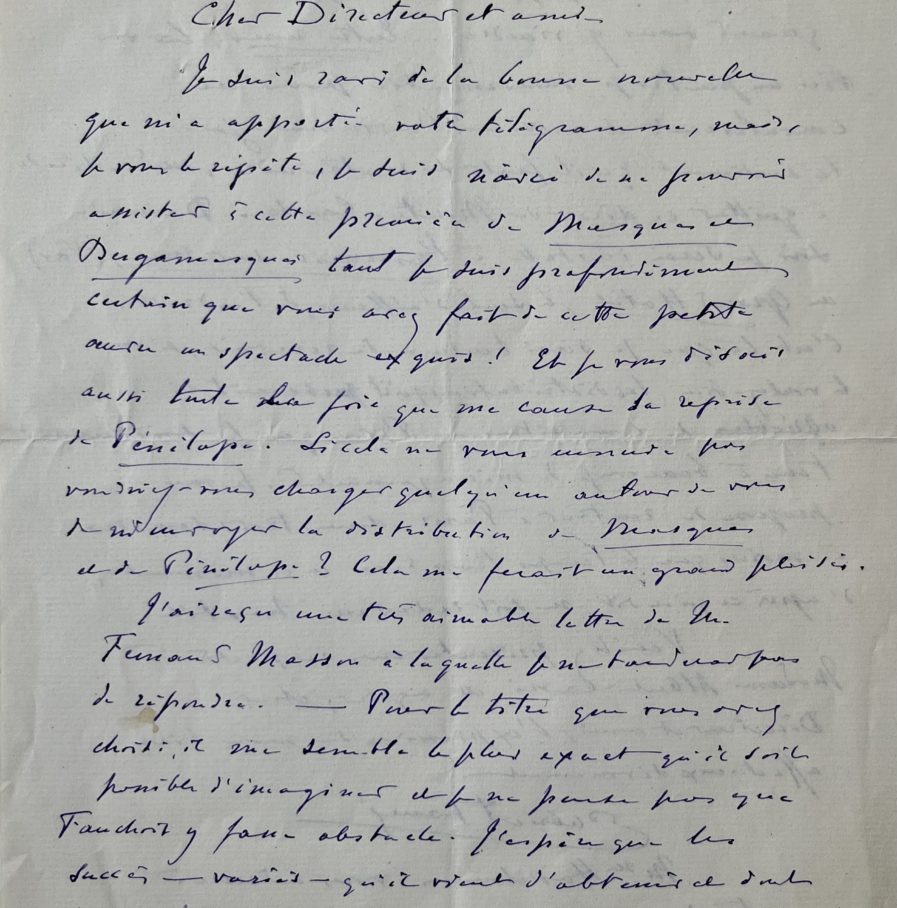 Cher Directeur et ami
Je suis ravi de la bonne nouvelle
que m'a apportée votre télégramme, mais,
je vous le répète, je suis navré de ne pouvoir
assister à cette première de Masques et
Bergamasques tant je suis profondément
certain que vous avez fait de cette petite
œuvre un spectacle exquis! Et je vous dis
aussi toute la joie que me cause la reprise
de Pénélope. Si cela ne vous ennuie pas
voudriez-vous charger quelqu'un autour de vous
de m'envoyer la distribution de Masques
et de Pénélope? Cela me ferait un grand plaisir.
J'ai reçu une très aimable lettre de M.
Fernand Masson à laquelle je ne tarderai pas
de répondre. — Pour le titre que vous avez
choisi, il me semble le plus exact qu'il soit
possible d'imaginer et je ne pense pas que
Fauchois y fasse obstacle. J'espère que les
succès — variés — qu'il vient d'obtenir et dont